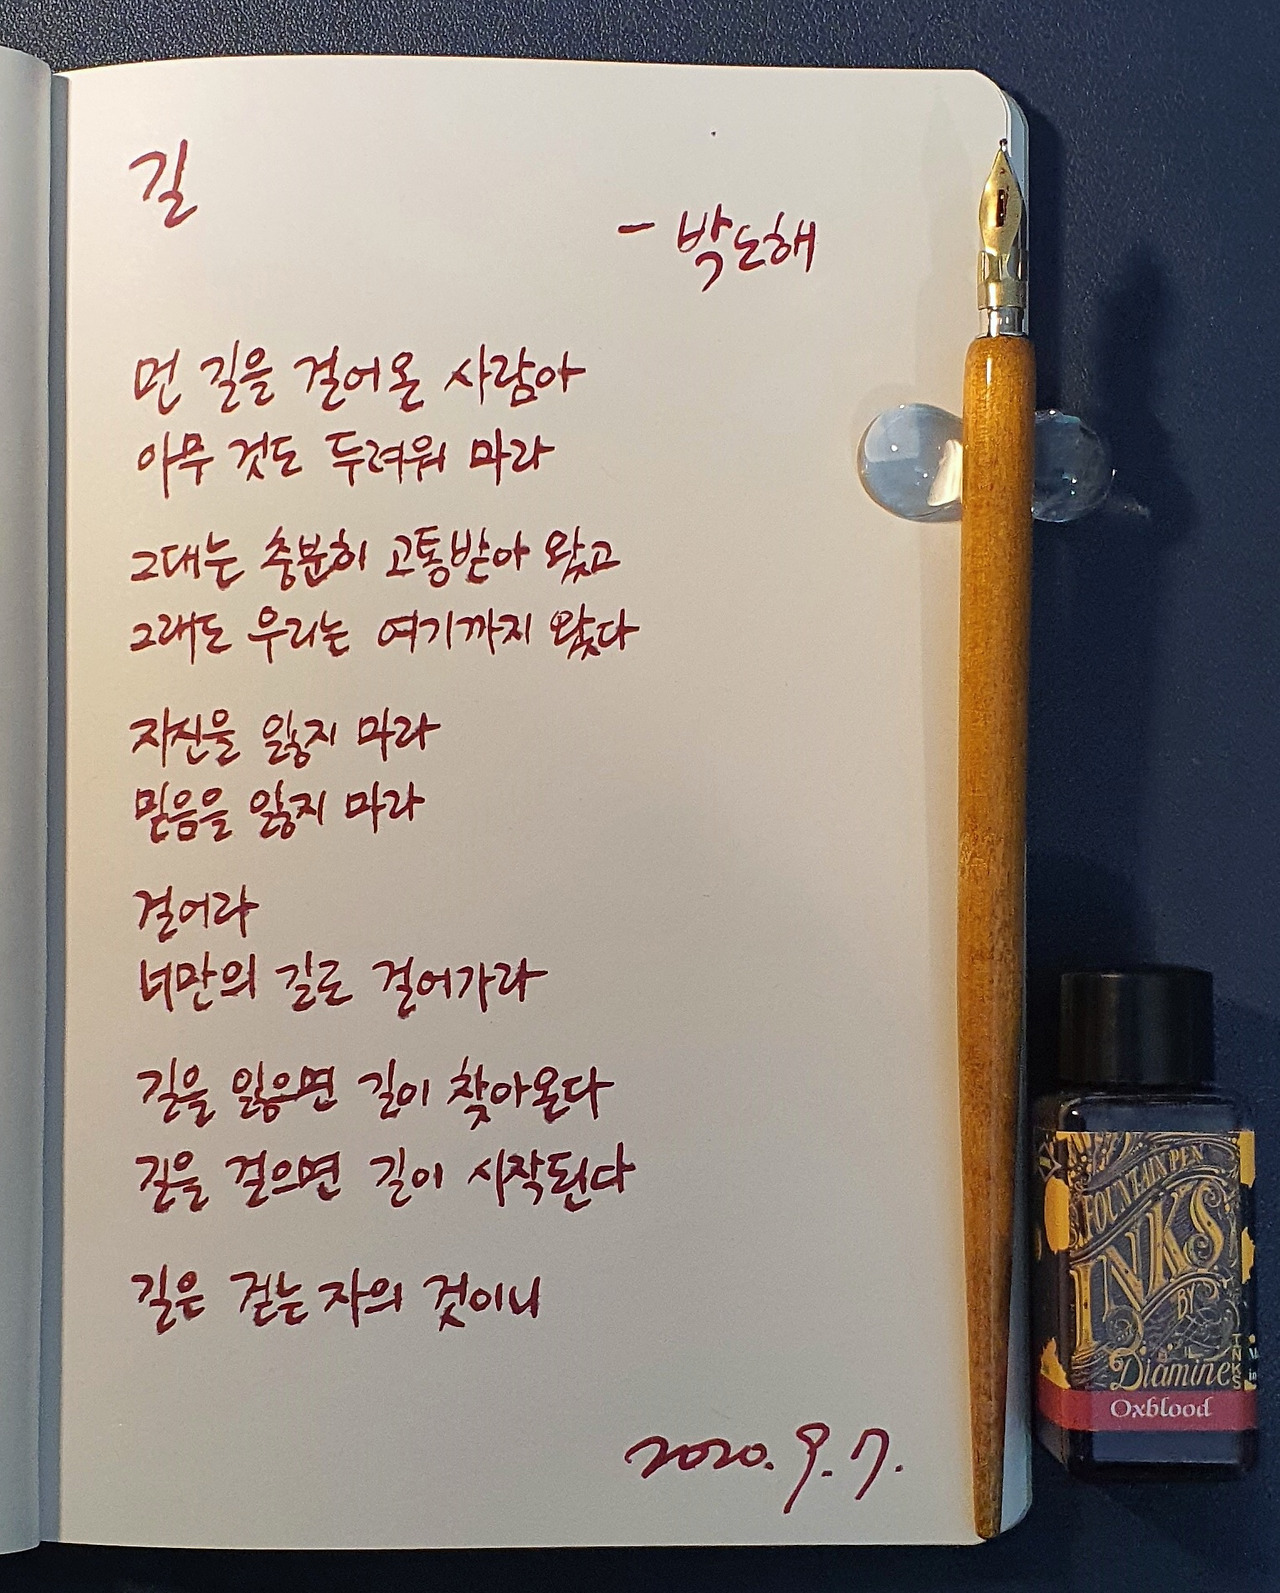 길
- 박노해
먼 길을 걸어온 사람아
아무 것도 두려워 마라
그대는 충분히 고통받아 왔고
그래도 우리는 여기까지 왔다
자신을 잃지 마라
믿음을 잃지 마라
걸어라
너만의 길로 걸어가라
길을 잃으면 길이 찾아온다
길을 걸으면 길이 시작된다
길은 걷는 자의 것이니
2020. 9. 7.
FOUNTAIN PEN
INKS
BY
Diamine
INKS
Oxblood